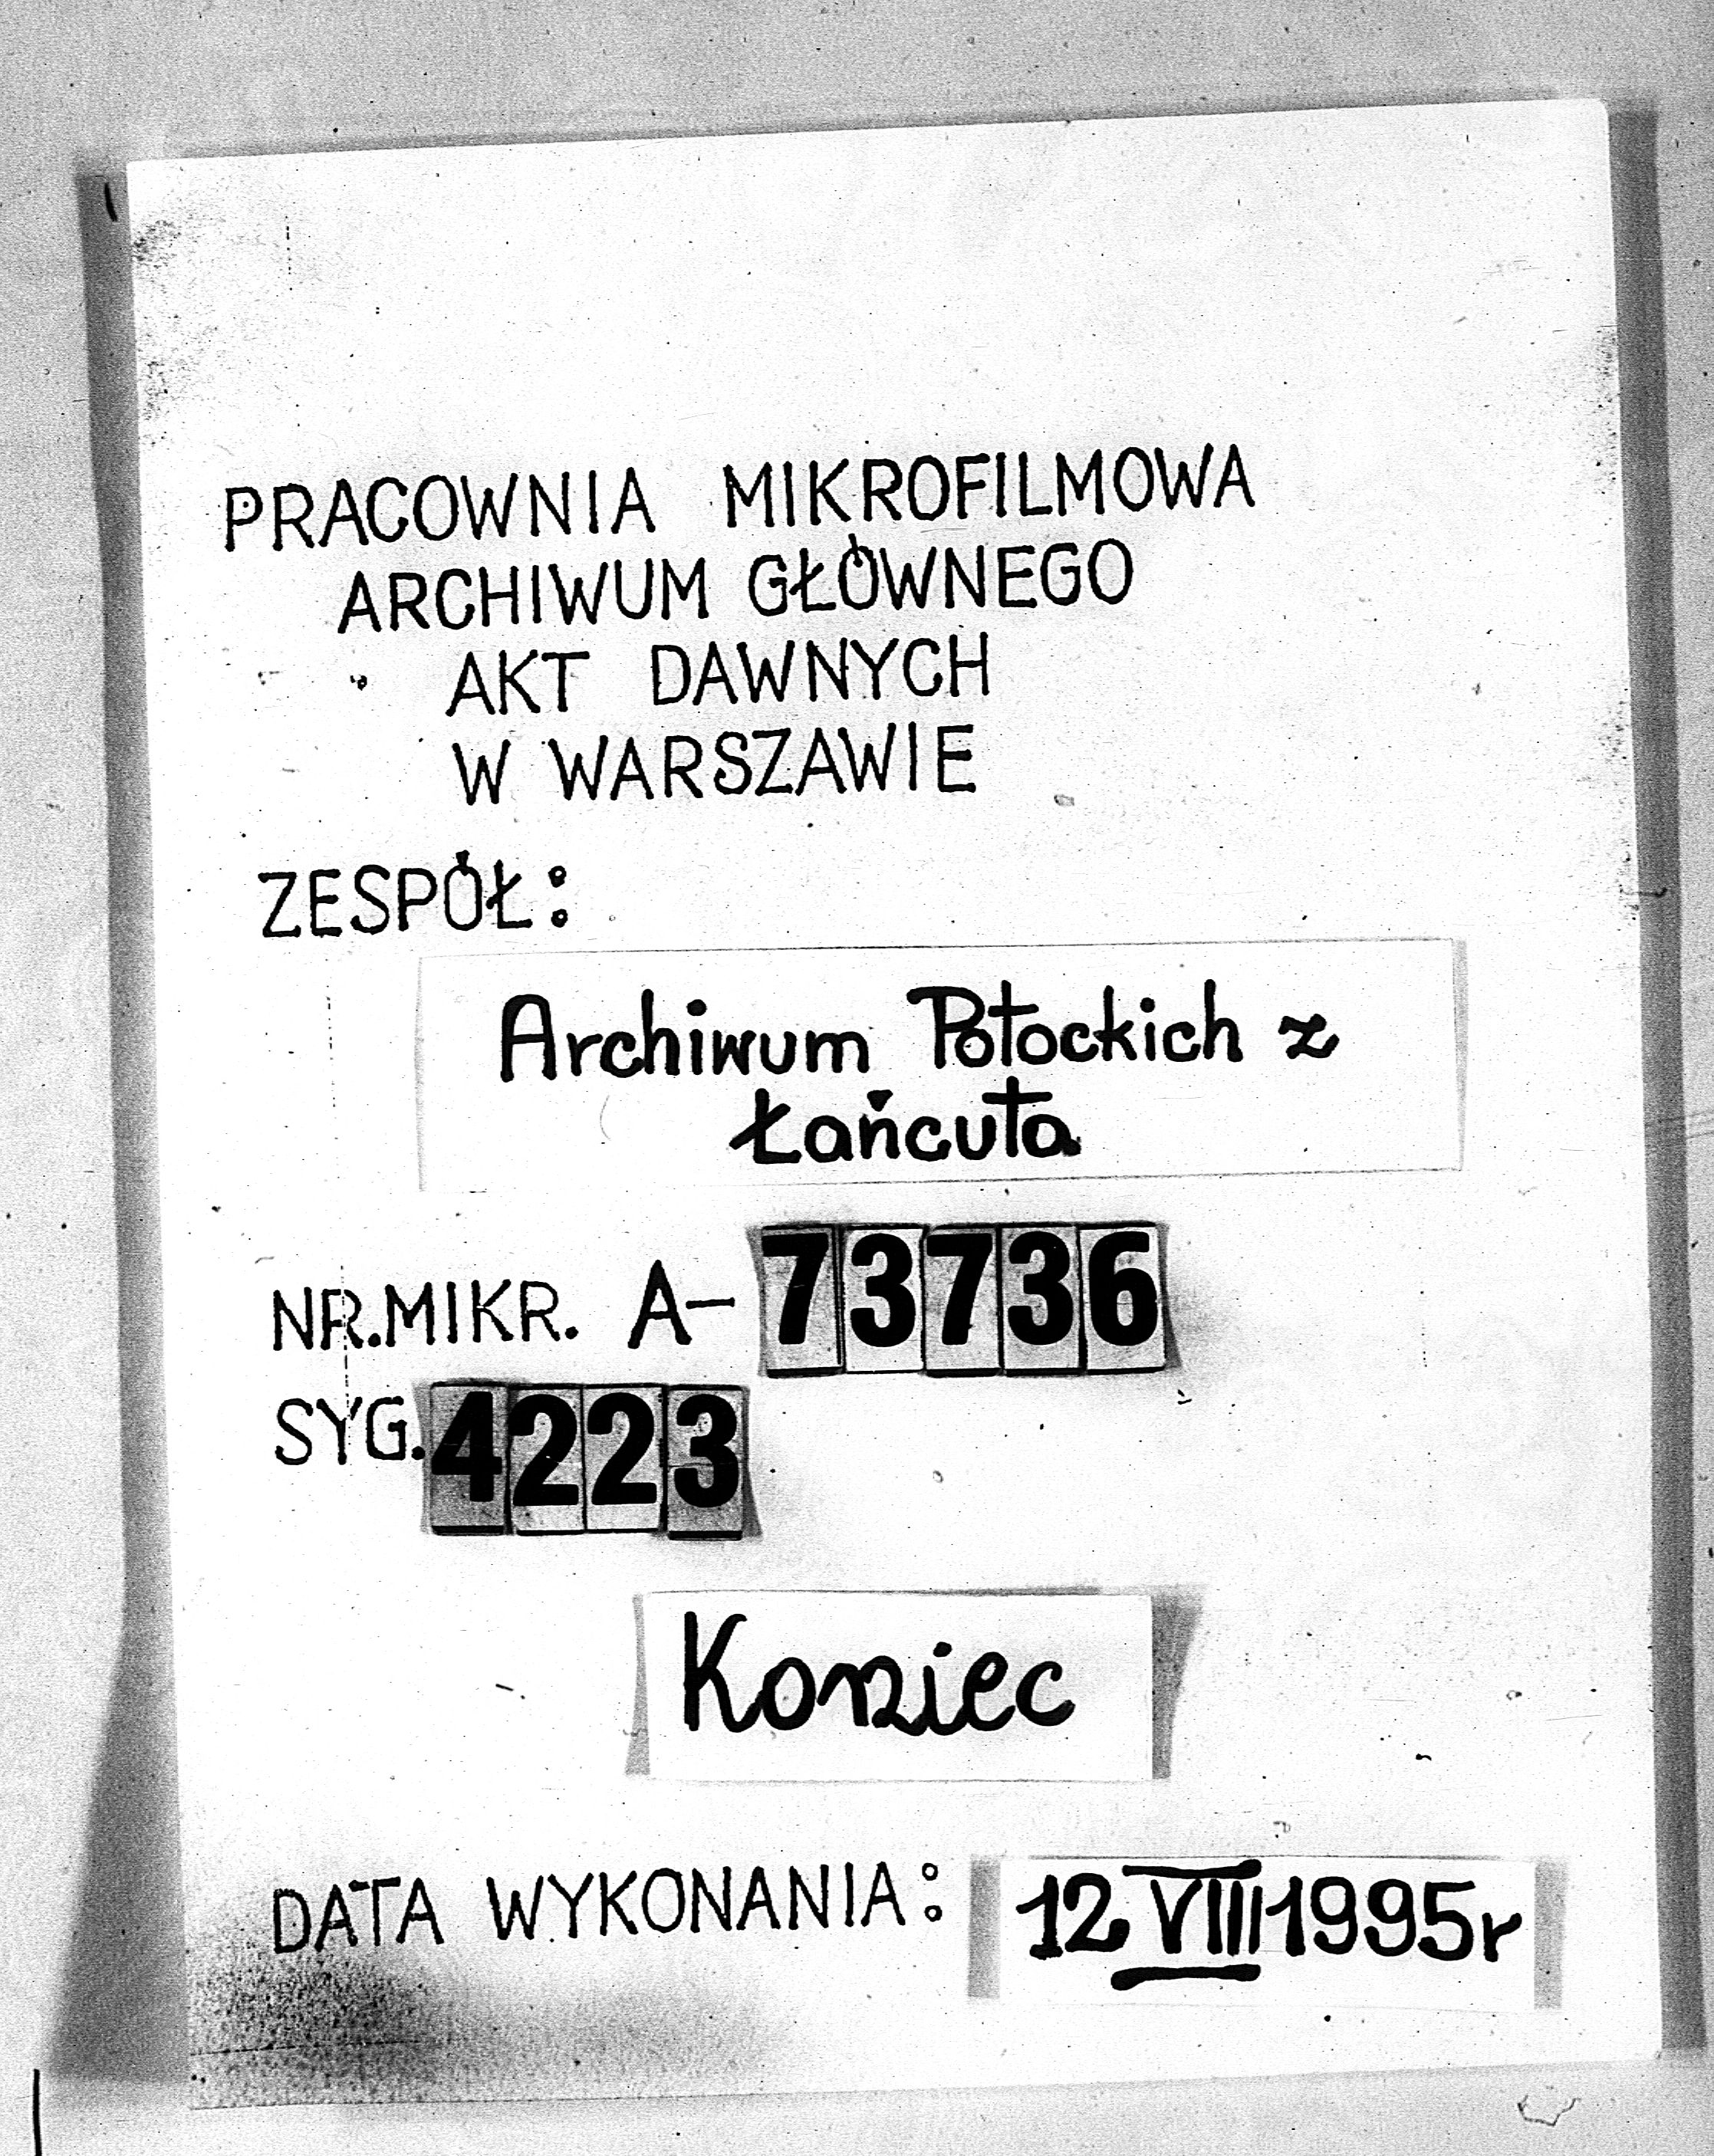 PRACOWNIA MIKROFILMOWA
ARCHIWUM GŁÓWNEGO
AKT DAWNYCH
W WARSZAWIE
ZESPÓŁ:
Archiwum Potockich z
Łańcuta
NR.MIKR. A-73736
SYG.4223
Koniec
DATA WYKONANIA: 12 VIII 1995r